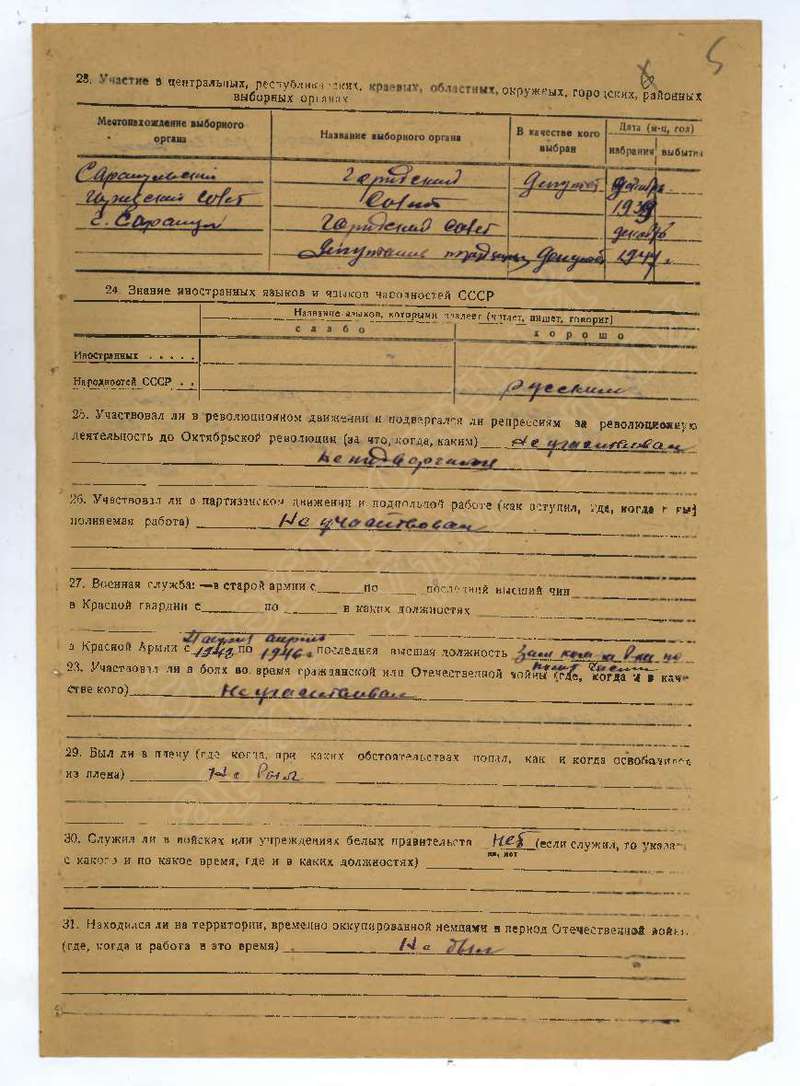 5
23. Участие в центральных, республиканских, краевых, областных, окружных, городских, районных
выборных органах
Местонахождение выборного органа
Название выборного органа
В качестве кого выбран
Дата (м-ц, год)
избрания
выбытия
Сарапульский городской депутат декабрь
городской совет совет 1939
г. Сарапул городской совет декабрь
депутатов трудящихся депутат 1947 г.
24. Знание иностранных языков и языков народностей СССР
Название языков, которыми владеет (читает, пишет, говорит)
слабо
хорошо
Иностранных . . . . .
Народностей СССР . . русским
25. Участвовал ли в революционном движении и подвергался ли репрессиям за революционную
деятельность до Октябрьской революции (за что, когда, каким) Не участвовал
не подвергался
26. Участвовал ли в партизанском движении и подпольной работе (как вступил, где, когда и вы-
полняемая работа) Не участвовал
27. Военная служба: — в старой армии с по последний высший чин
в Красной гвардии с по в каких должностях
в Красной Армии с 1943 по апрель 1946 г последняя высшая должность зам ком по
полит части
28. Участвовал ли в боях во время гражданской или Отечественной войны (где, когда и в каче-
стве кого) Не участвовал
29. Был ли в плену (где когда, при каких обстоятельствах попал, как и когда освобожден
из плена) Не был
30. Служил ли в войсках или учреждениях белых правительств Нет (если служил, то указать
да, нет
с какого и по какое время, где и в каких должностях)
31. Находился ли на территории, временно оккупированной немцами в период Отечественной войны
(где, когда и работа в это время) Не был